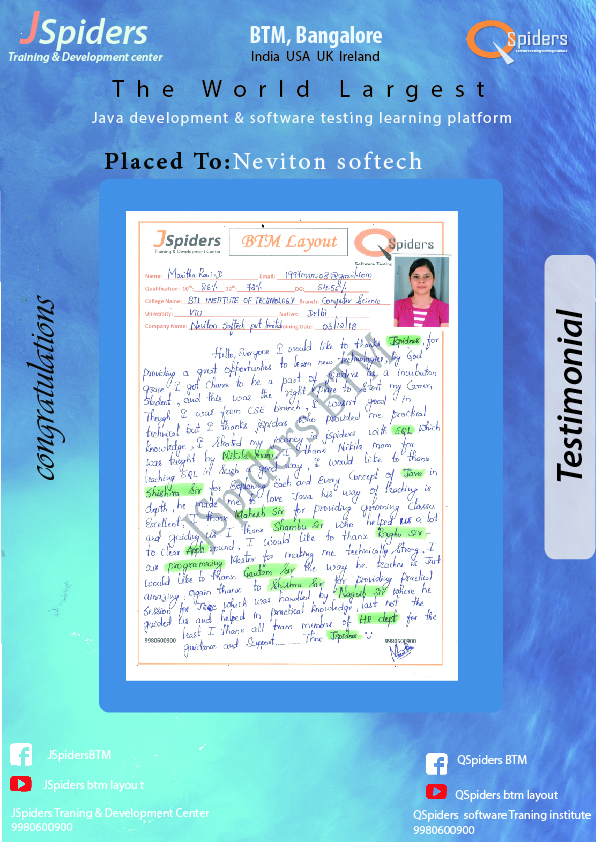 JSpiders
Training & Development center
BTM, Bangalore
India USA UK Ireland
QSpiders
The World Largest
Java development & software testing learning platform
Placed To:Neviton softech
congratulations
Testimonial
JSpiders
Training & Development Center
BTM LAYOUT
QSpiders
Software Testing
Name: Email:
Qualification: 10th: 86% 12th: 73% DG:
College Name: BTL INSTITUTE OF TECHNOLOGY Branch: Computer Science
University: VTU Native: Delhi
Company Name: Neviton Softech pvt Joining Date: 03/12/18
Hello, Everyone I would like to thanks Jspiders, for
providing a great opportunities to learn new technologies, by God
grace I got chance to be a part of Jspiders as a incubation
Student, and this was the right time to start my Career,
Though I was from CSE branch, I wasn't good in
technical but I thanks Jspiders who provided me practical
knowledge, I started my journey in Jspiders with SQL which
was taught by I thank mam for
teaching SQL in such a good way, I would like to thank
Shishira Sir for explaining each and every concept of Java in
depth, he made me to love Java his way of teaching is
Excellent. I thank Mahesh Sir for providing grooming classes
and guiding us, I thank Shambu Sir who helped us a lot
to Clear round, I would like to thank Raghu Sir
our programming Master for making me technically strong, I
would like to thank Gautam Sir the way he teaches is just
amazing. again thanks to Shishira Sir for providing practical
Session for which was handled by Sir where he
guided us and helped in practical knowledge, last not the
least I thank all team member of HR dept for the
guidance and support Jspiders
9980600900
9980500900
JSpiders BTM
JSpidersBTM
JSpiders btm layou t
JSpiders Traning & Development Center
9980600900
QSpiders BTM
QSpiders btm layout
QSpiders software Traning institute
9980600900